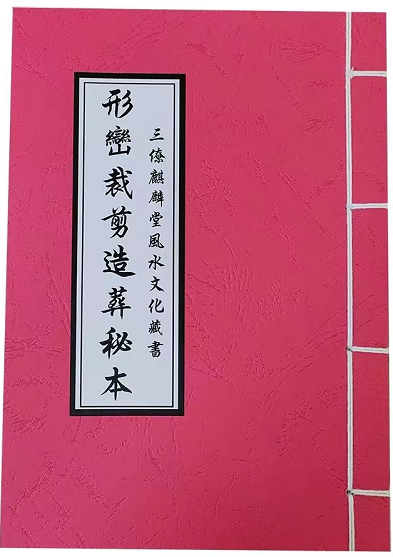 三僚麒麟堂風水文化藏書
形巒裁剪造葬秘本